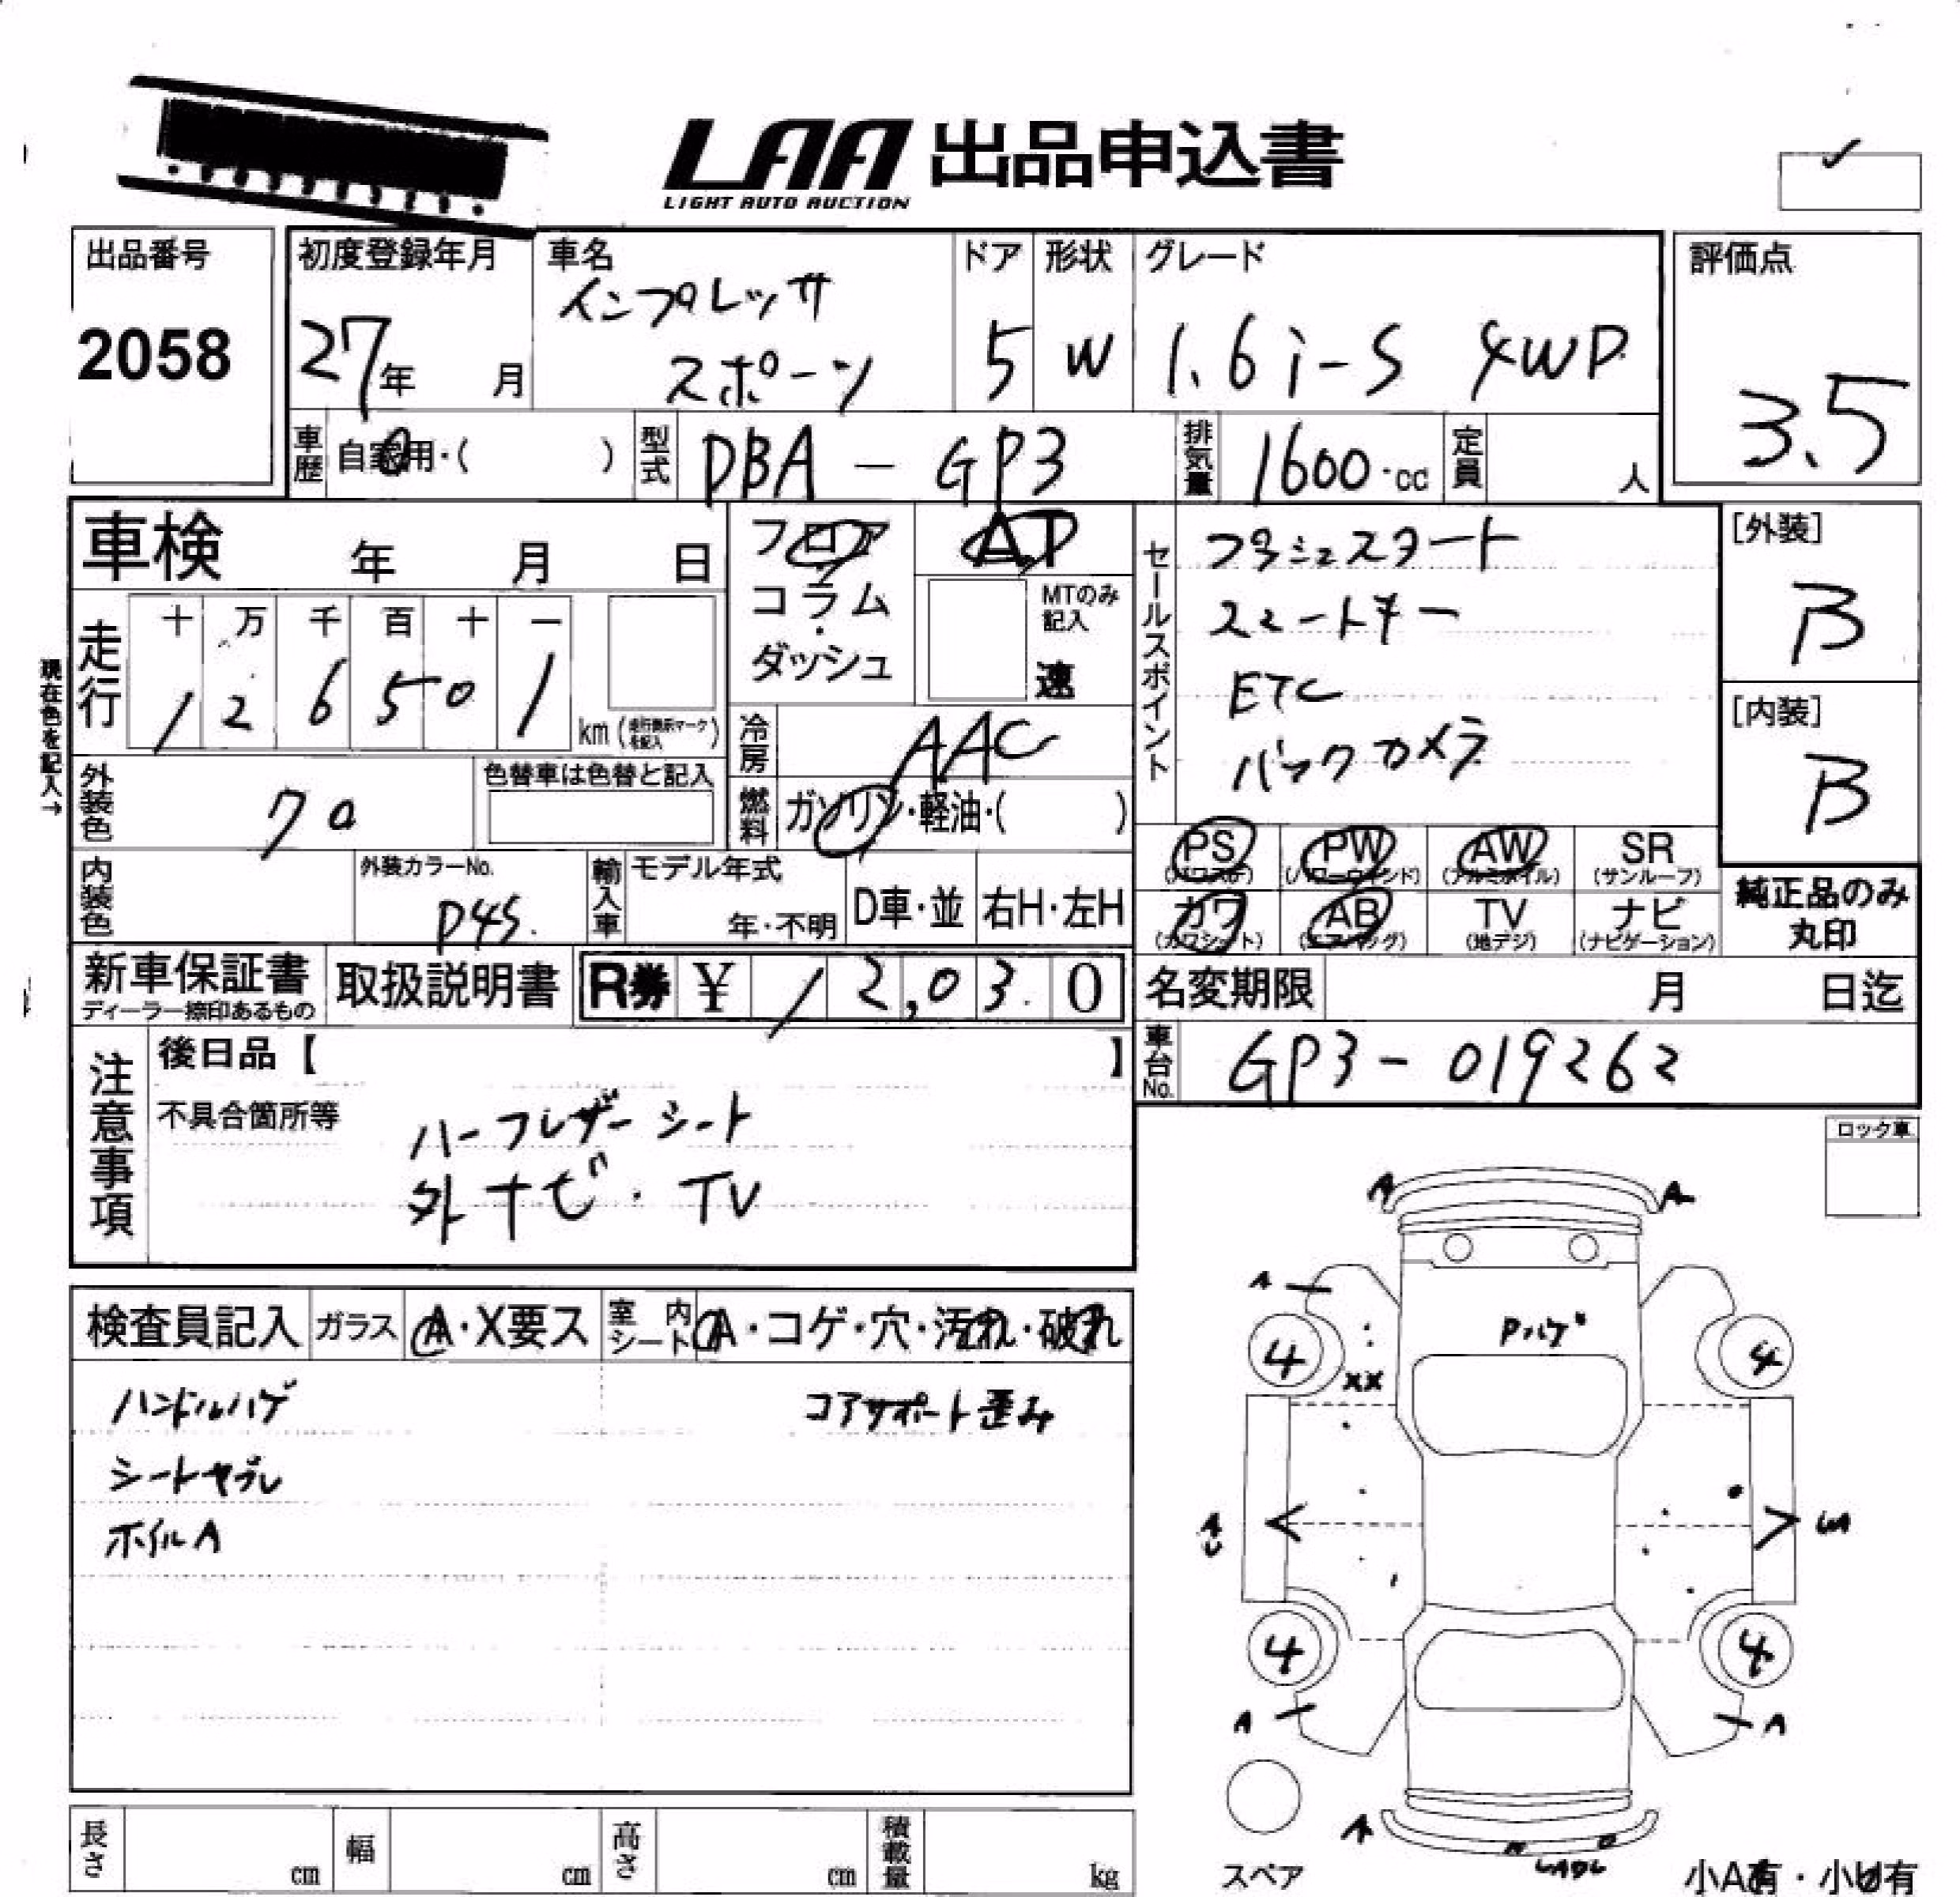 LAA 出品申込書
LIGHT AUTO AUCTION
出品番号
2058
初度登録年月
27年 月
車名
インプレッサ
スポーツ
ドア
5
形状
W
グレード
1.6i-S 4WD
評価点
3.5
車歴 自家用・( )
型式 DBA-GP3
排気量 1600・cc
定員 人
車検 年 月 日
走行
十 万 千 百 十 一
1 2 6 5 0 1
km (走行表示マークを記入)
現在色を記入→
フロア
コラム
・
ダッシュ
AT
MTのみ記入
速
冷房 AAC
燃料 ガソリン・軽油・( )
セールスポイント
プッシュスタート
スマートキー
ETC
バックカメラ
[外装]
B
[内装]
B
外装色 70
色替車は色替と記入
内装色
外装カラーNo.
P4S.
輸入車
モデル年式
年・不明
D車・並
右H・左H
PS (パワステ)
PW (パワーウインド)
AW (アルミホイル)
SR (サンルーフ)
カワ (カワシート)
AB (エアバッグ)
TV (地デジ)
ナビ (ナビゲーション)
純正品のみ
丸印
新車保証書
ディーラー捺印あるもの
取扱説明書
R券 ¥ 12,030
名変期限 月 日迄
車台No. GP3-019262
注意事項
後日品【 】
不具合箇所等
ハーフレザーシート
外ナビ・TV
ロック車
検査員記入
ガラス A・X要ス
室内シート A・コゲ・穴・汚れ・破れ
ハンドルハゲ
コアサポート歪み
シートヤブレ
ホイルA
A A
A
Pハゲ
4 4
XX
A
U
4 4
A A
A
スペア
小A有・小U有
長さ cm
幅 cm
高さ cm
積載量 kg